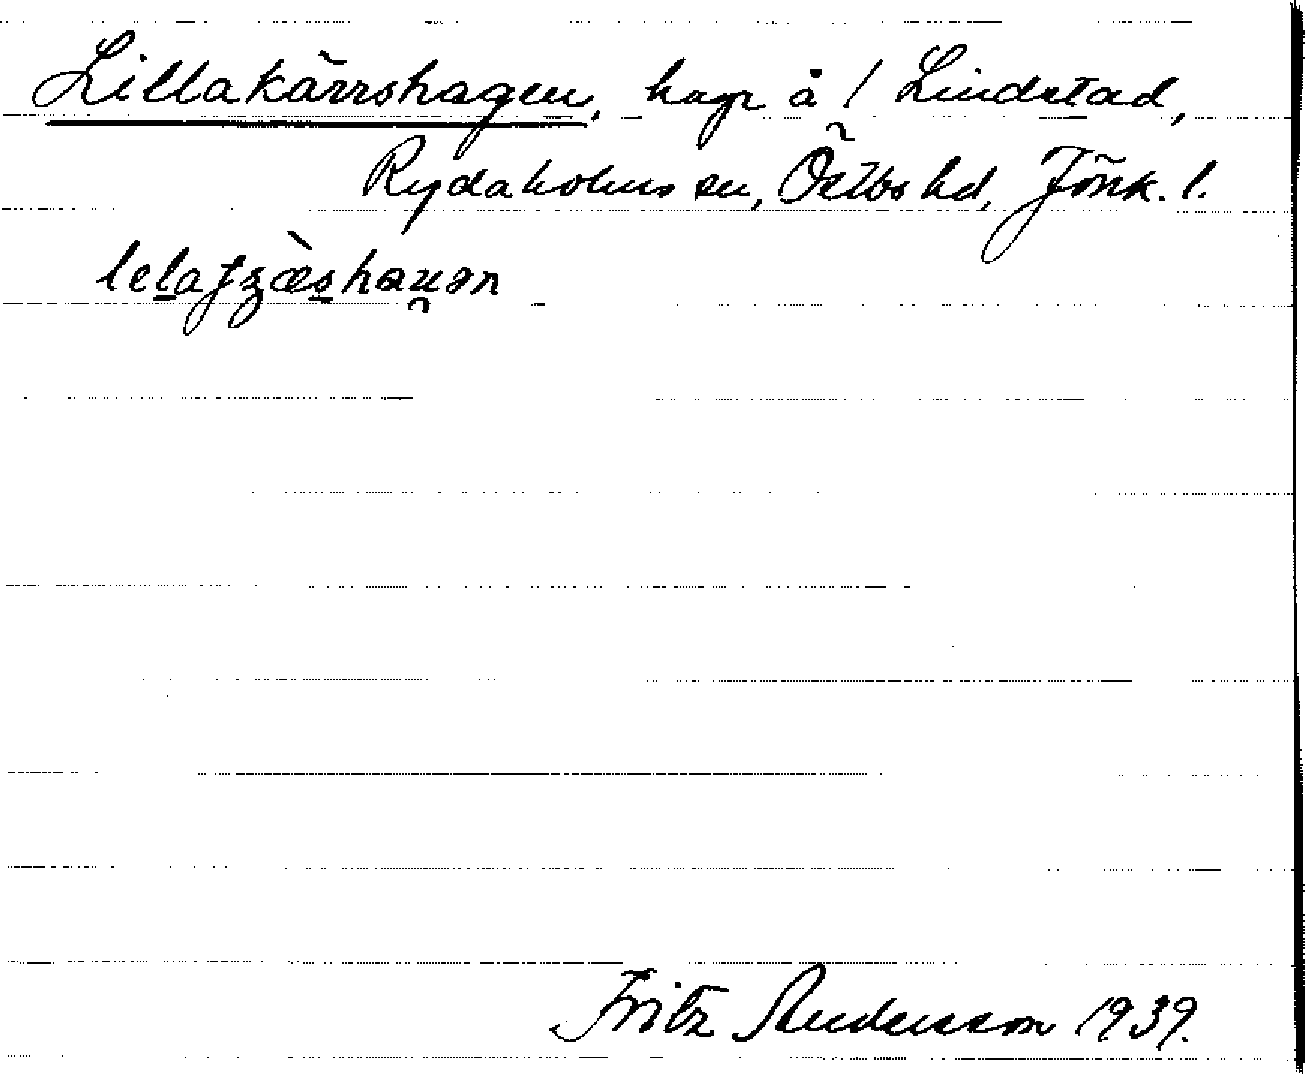 Lillakärrshagen, hage å 1 Lindstad,
Rydaholms sn, Östbo hd, Jönk. l.
Fritz Andersson 1939.